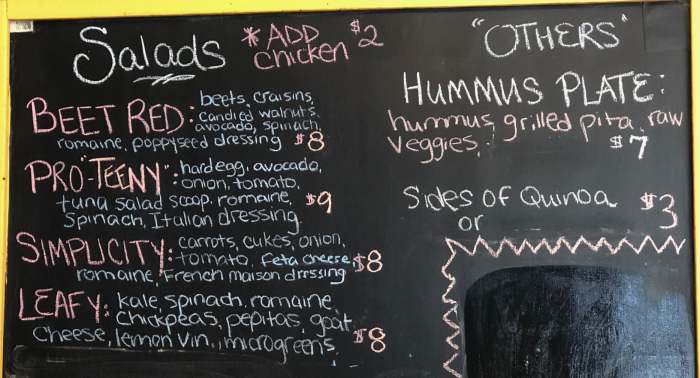 Salads * ADD chicken $2
BEET RED: beets, craisins,
candied walnuts,
avocado, spinach,
romaine, poppyseed dressing $8
PRO-"TEENY": hard egg, avocado,
onion, tomato,
tuna salad scoop, romaine, $9
Spinach, Italian dressing.
SIMPLICITY: carrots, cukes, onion,
tomato, feta cheese, $8
romaine, French maison dressing
LEAFY: kale, spinach, romaine,
Chickpeas, pepitas, goat
cheese, lemon vin., microgreens. $8
"OTHERS"
HUMMUS PLATE:
hummus, grilled pita, raw
veggies. $7
Sides of Quinoa $3
or